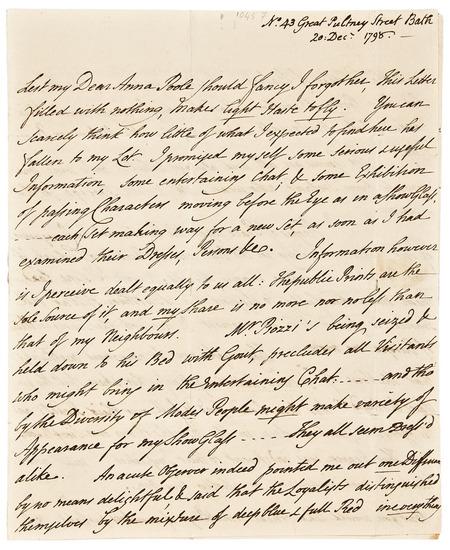 No. 43 Great Pultney Street Bath
20: Decr. 1798. —
Lest my Dear Anna Poole should fancy I forgot her, This Letter
filled with nothing, makes light Haste to fly. You can
scarcely think how little of what I expected to find here has
fallen to my Lot. I promised myself some serious & useful
Information some entertaining Chat, & some Exhibition
of passing Characters moving before the Eye as in a Show Glass,
each Set making way for a new Set, as soon as I had
examined their Dresses, Persons &c. Information however
is I perceive dealt equally to us all: the public Prints are the
sole source of it, and my share is no more nor less than
that of my Neighbours. Mr. Piozzi's being seized &
held down to his Bed with Gout, precludes all Visitants
who might bring in the entertaining Chat ---- and tho'
by the Diversity of Modes People might make variety of
Appearance for my Show Glass ---- They all seem Dress'd
alike. An acute Observer indeed pointed me out one Difference
by no means delightful, & said that the Loyalists distinguished
themselves by the mixture of deep blue & full Red in every thing